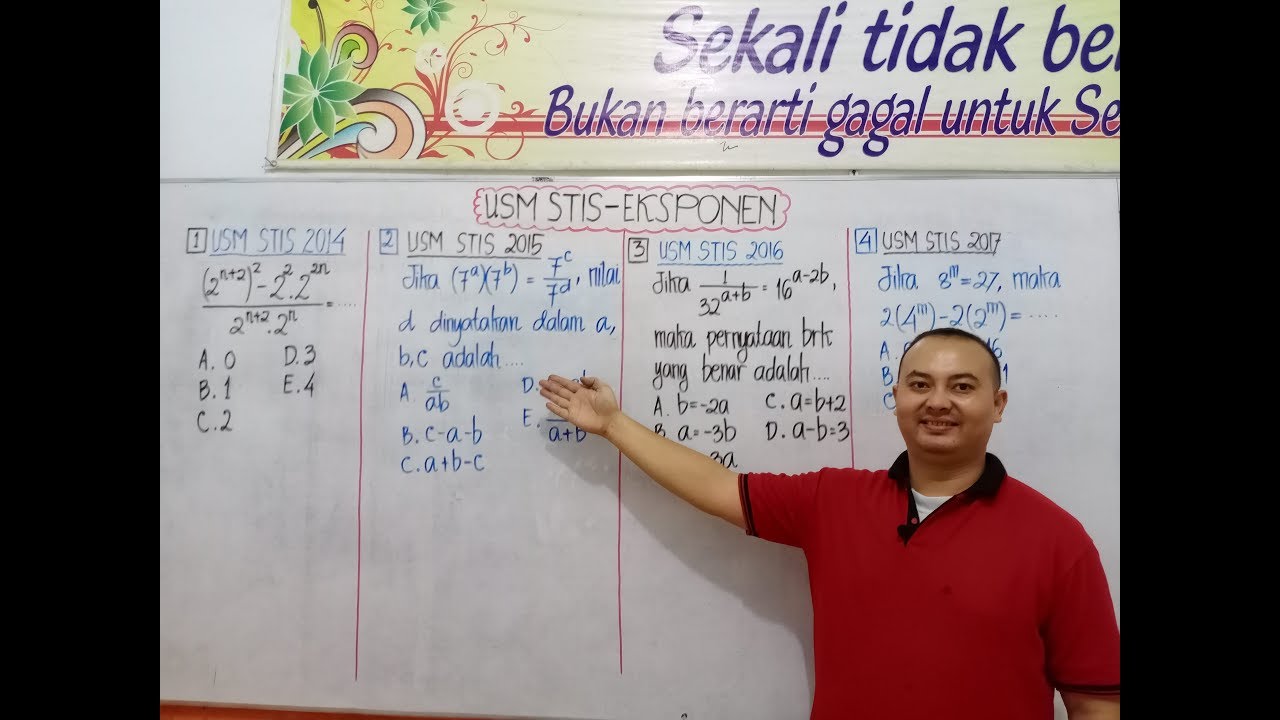 Sekali tidak be
Bukan berarti gagal untuk Se
USM STIS-EKSPONEN
1 USM STIS 2014
((2^(n+2))^2 - 2^2 . 2^(2n)) / (2^(n+2) . 2^n) = ....
A. 0 D. 3
B. 1 E. 4
C. 2
2 USM STIS 2015
Jika (7^a)(7^b) = 7^c/7^d, nilai
d dinyatakan dalam a,
b, c adalah ....
A. c/ab D.
B. c-a-b E. a+b
C. a+b-c
3 USM STIS 2016
Jika 1/32^(a+b) = 16^(a-2b),
maka pernyataan brk
yang benar adalah ....
A. b=-2a C. a=b+2
B. a=-3b D. a-b=3
3a
4 USM STIS 2017
Jika 8^m = 27, maka
2(4^m) - 2(2^m) = ....
A.
B.